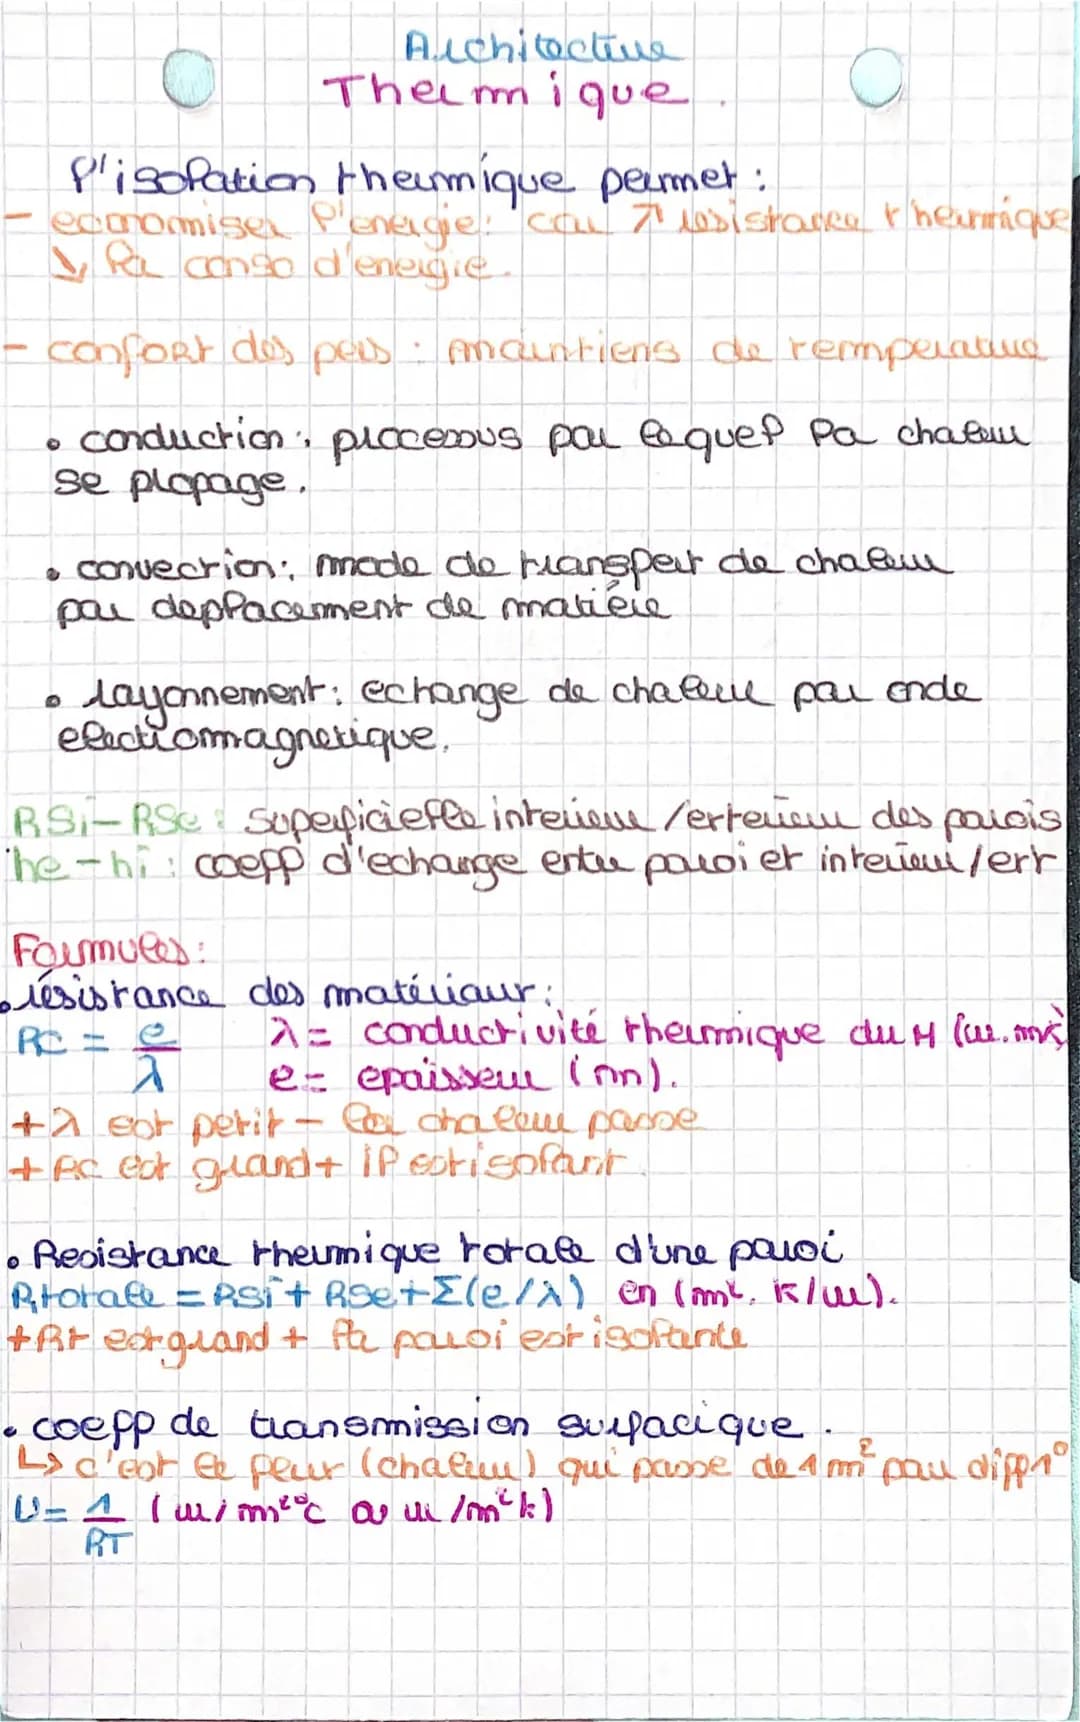 Architecture
Thermique.
l'isolation thermique permet :
- economiser l'energie: car ↗ resistance thermique
↘ la conso d'energie.
- confort des pers : maintiens de temperature
• conduction : processus par lequel la chaleur
se propage.
• convection : mode de transpert de chaleur
par deplacement de matière
• rayonnement : echange de chaleur par onde
electromagnetique.
RSi - RSe : superficielle interieur / exterieur des parois
he - hi : coeff d'echange entre paroi et interieur / ext
Formules :
• résistance des matériaux :
RC = e/λ λ = conductivité thermique du M (w.mk)
e = epaisseur (m).
+ λ est petit - la chaleur passe
+ RC est grand + il est isolant.
• Resistance thermique totale d'une paroi
R totale = Rsi + Rse + Σ(e/λ) en (m². k/w).
+ Rt est grand + la paroi est isolante
• coeff de transmission surfacique.
↳ c'est le flux (chaleur) qui passe de 1 m² par diff 1°
U = 1/RT (w/m²°c ou w/m²k)